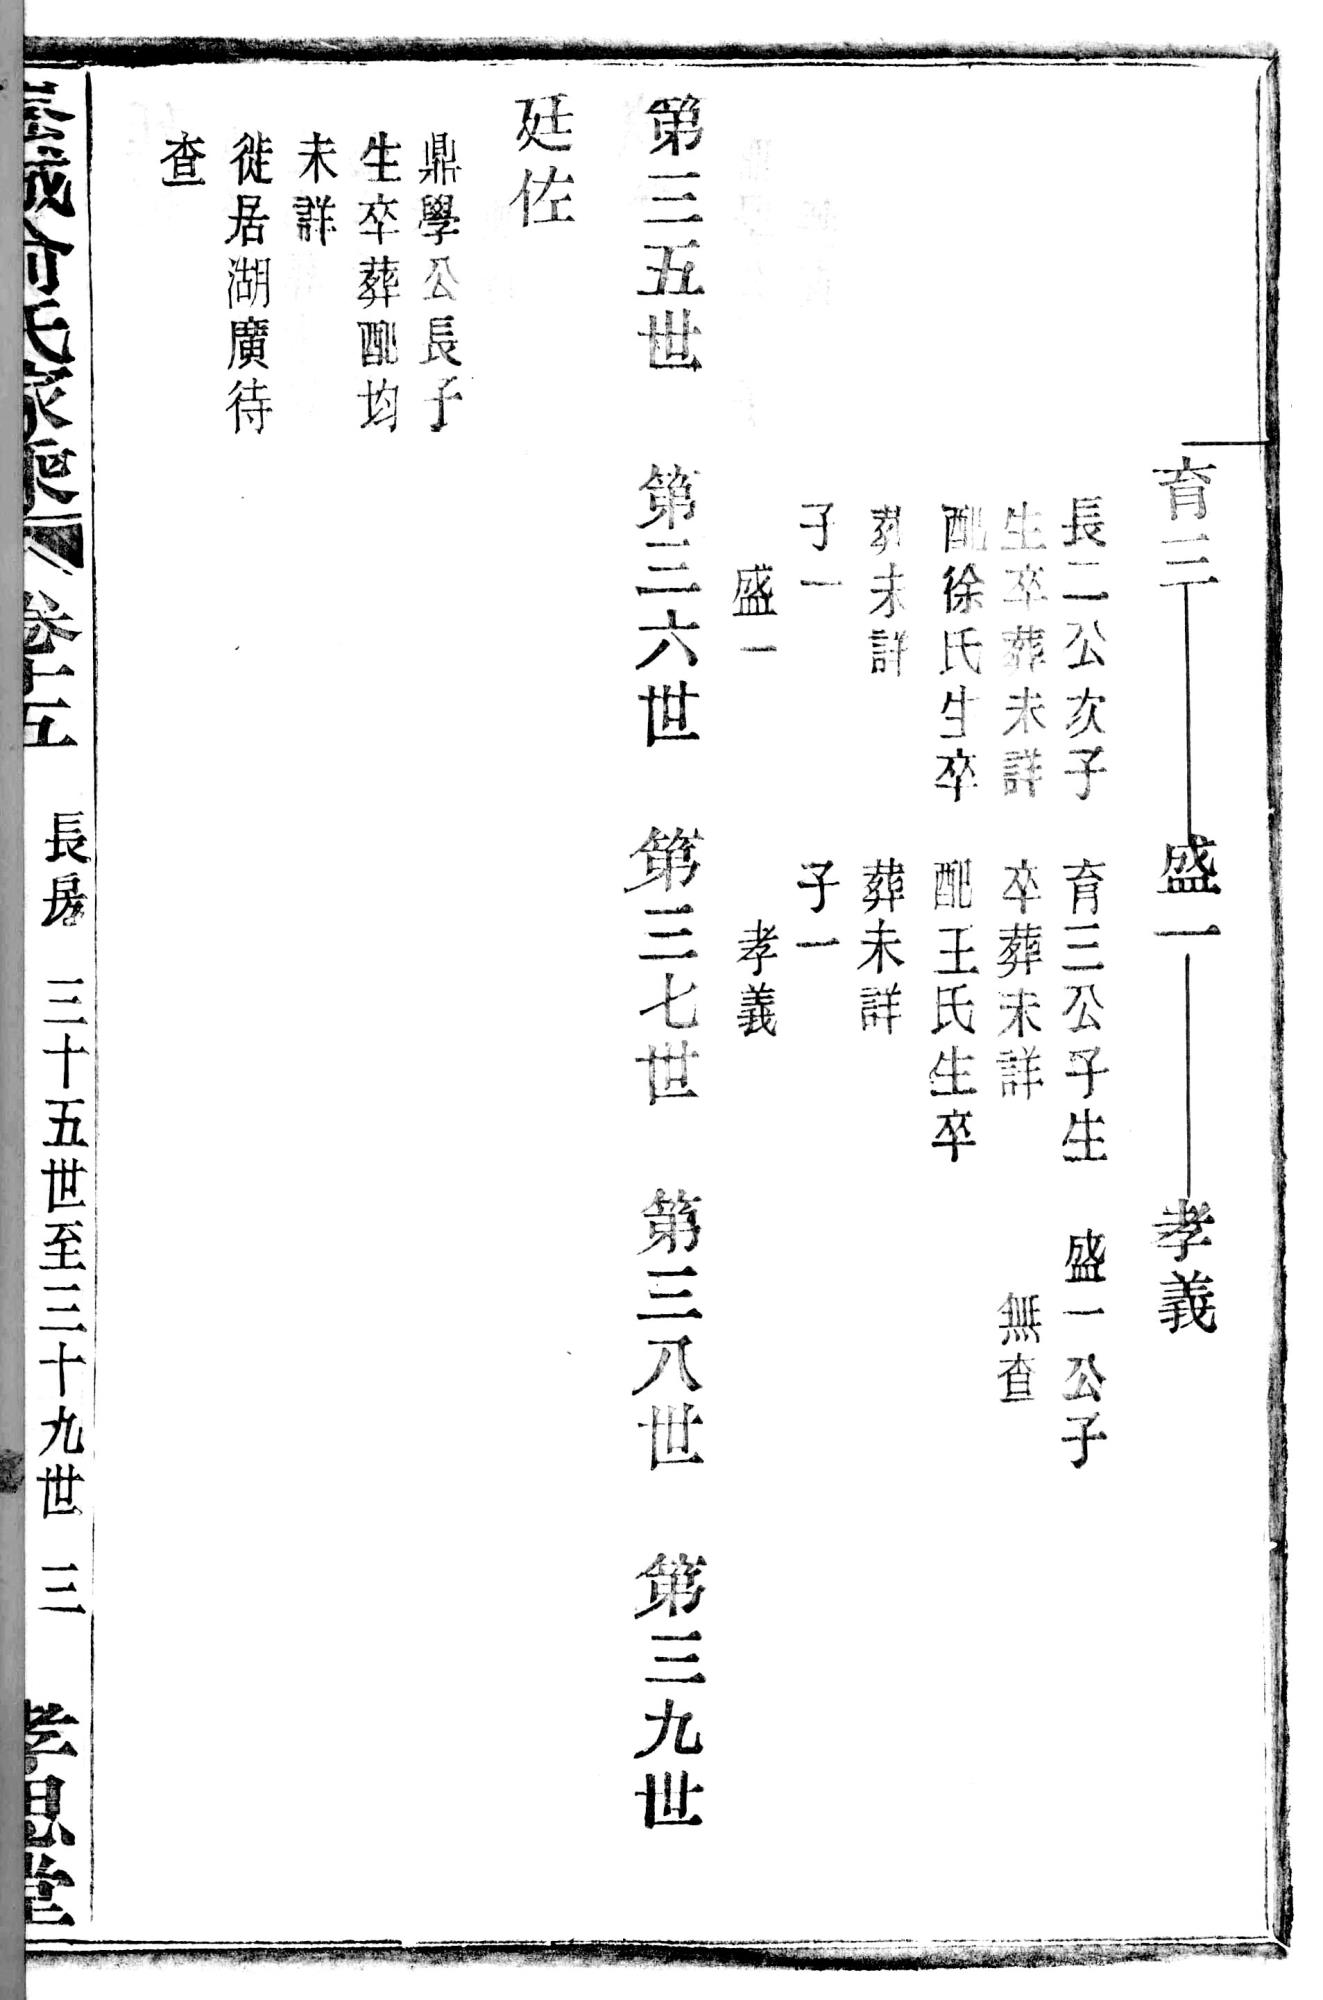 育三
盛一
孝義
長二公次子
生卒葬未詳
配徐氏生卒
葬未詳
子一
盛一
育三公子生
卒葬未詳
配王氏生卒
葬未詳
子一
孝義
盛一公子
無查
第三五世
第三六世
第三七世
第三八世
第三九世
廷佐
鼎學公長子
生卒葬配均
未詳
徙居湖廣待
查
俞氏家乘
卷十五
長房
三十五世至三十九世
三
孝思堂